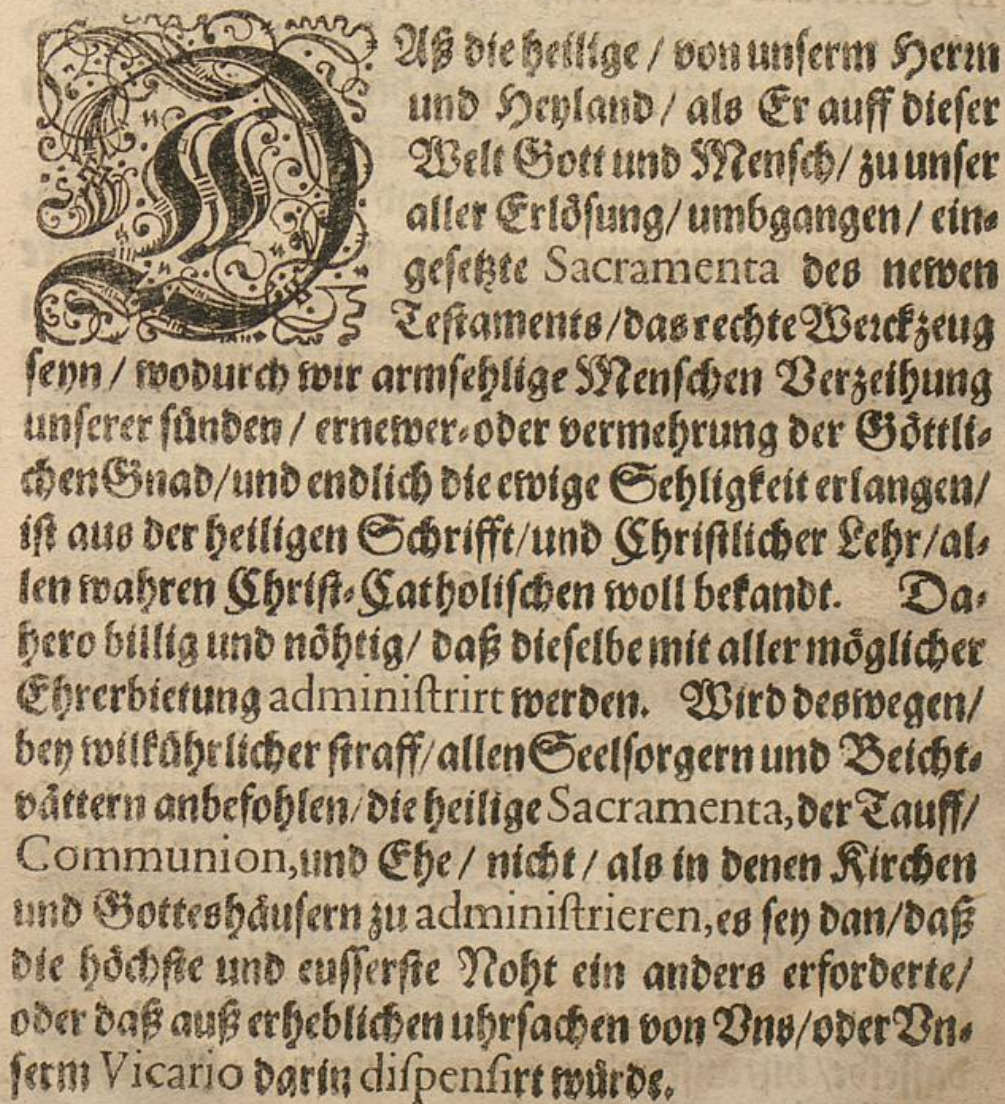 DAß die heilige / von unserm Herrn
und Heyland / als Er auff dieser
Welt Gott und Mensch / zu unser
aller Erlösung / umbgangen / ein-
gesetzte Sacramenta des newen
Testaments / das rechte Werckzeug
seyn / wodurch wir armsehlige Menschen Verzeihung
unserer sünden / ernewer-oder vermehrung der Göttli-
chen Gnad / und endlich die ewige Sehligkeit erlangen /
ist aus der heiligen Schrifft / und Christlicher Lehr / al-
len wahren Christ-Catholischen woll bekandt. Da-
hero billig und nöhtig / daß dieselbe mit aller möglicher
Ehrerbietung administrirt werden. Wird deswegen /
bey wilkührlicher straff / allen Seelsorgern und Beicht-
vättern anbefohlen / die heilige Sacramenta, der Tauff /
Communion, und Ehe / nicht / als in denen Kirchen
und Gotteshäusern zu administrieren, es sey dan / daß
die höchste und eusserste Noht ein anders erforderte /
oder daß auß erheblichen uhrsachen von Vns / oder Vn-
serm Vicario darin dispensirt würde.